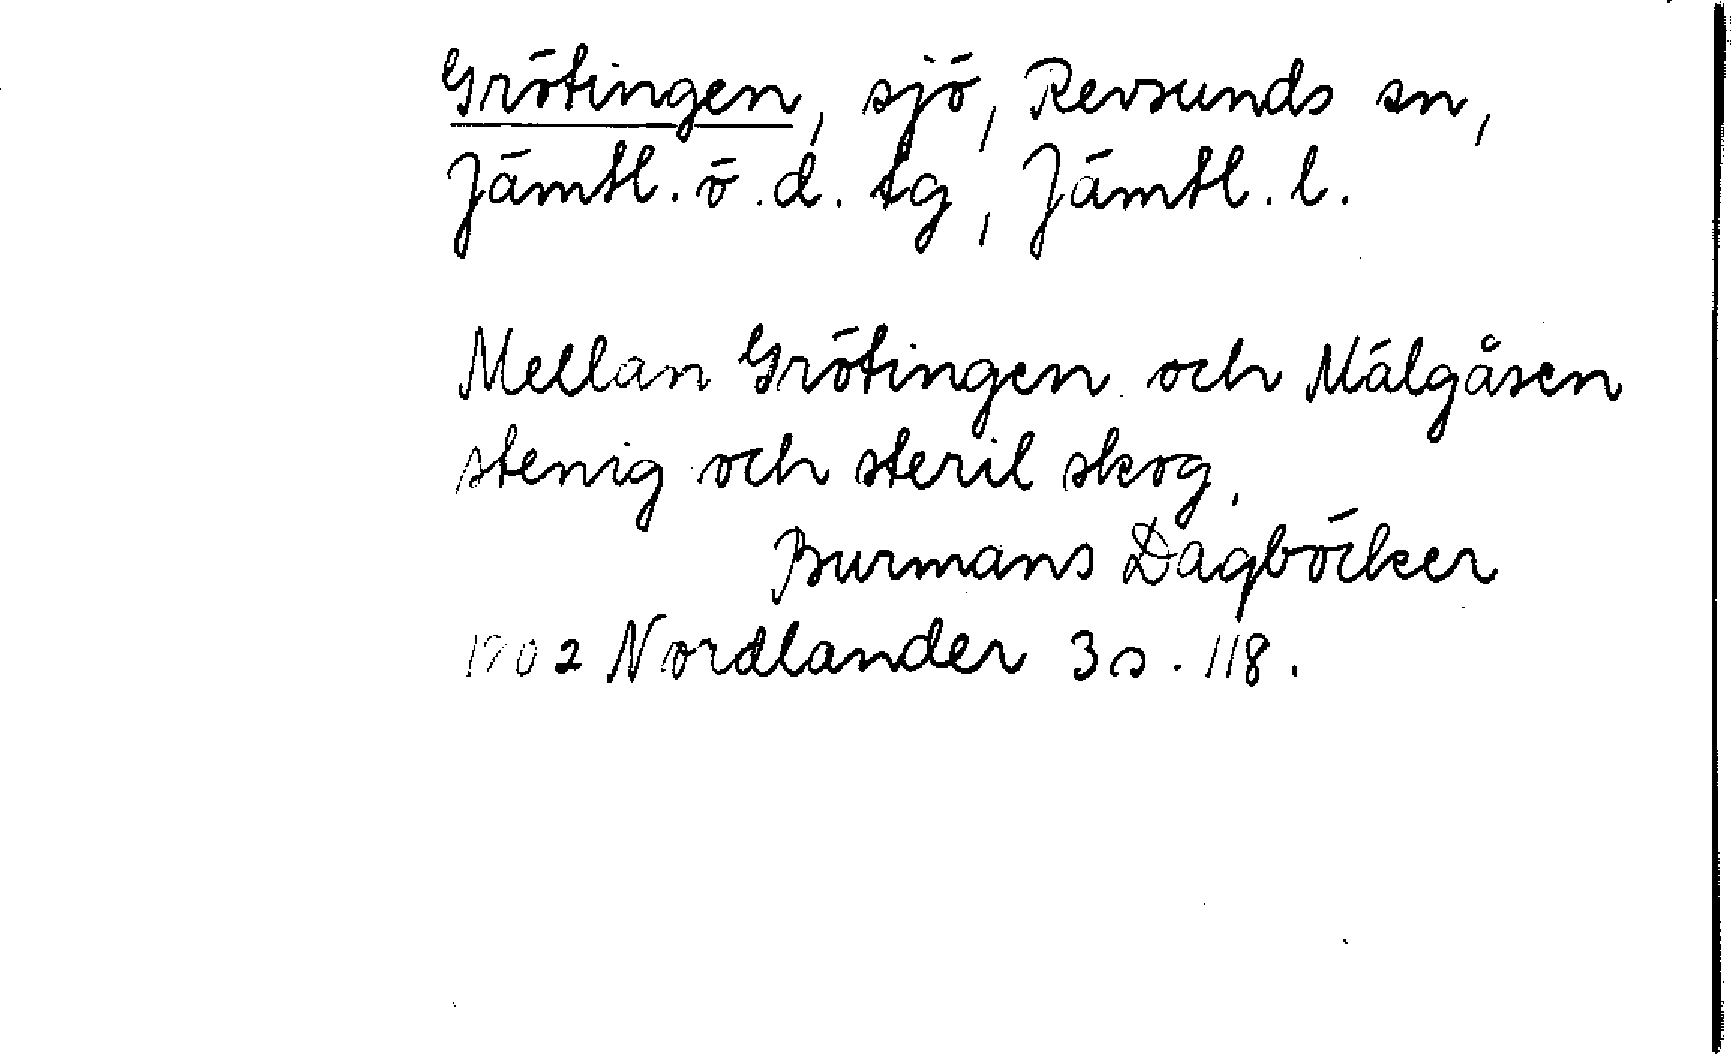 Grötingen, sjö, Revsunds sn,
Jämtl. ö. d. tg, Jämtl. l.
Mellan Grötingen och Målgåsen
stenig och steril skog.
Burmans Dagböcker
1802 Nordlander 3 s. 118.